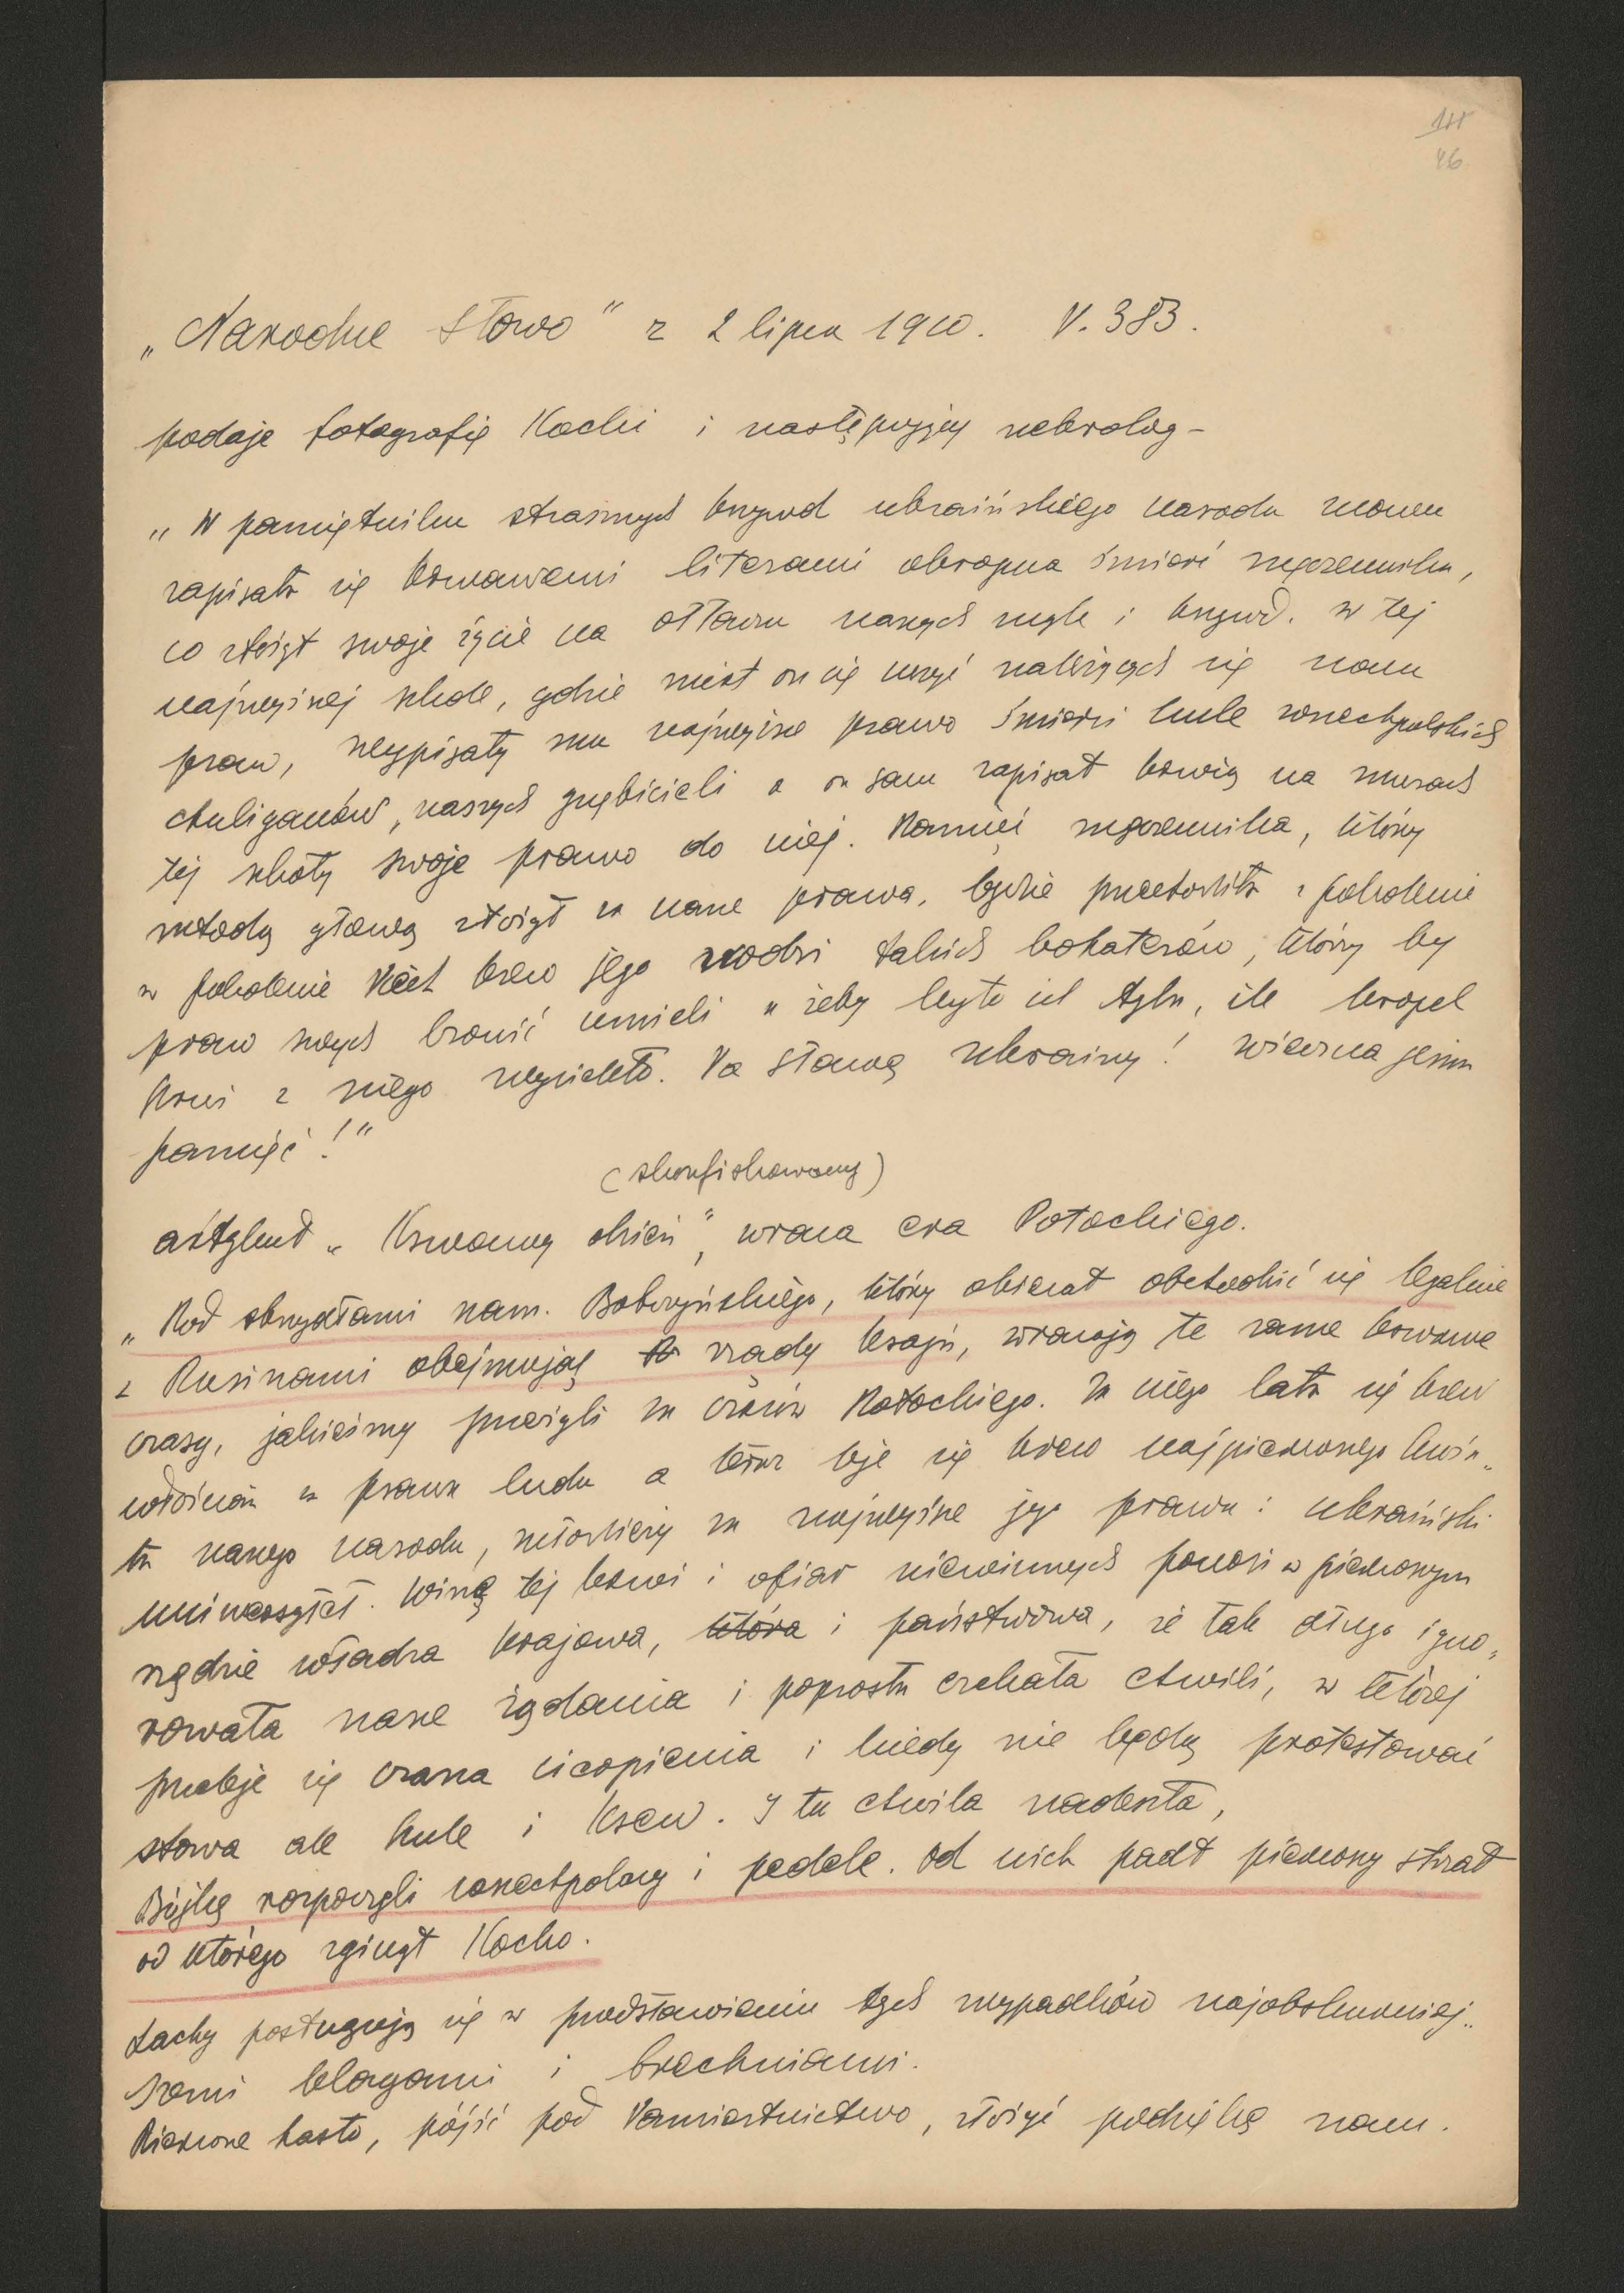 111
46
„Narodne Słowo" z 2 lipca 1910. N. 383.
podaje fotografię Kocki i następujący nekrolog –
„W pamiętniku strasznych krzywd ukraińskiego narodu znowu
zapisała się krwawemi literami okropna śmierć męczennika,
co złożył swoje życie na ołtarzu naszych mąk i krzywd. w tej
najwyższej szkole, gdzie miał on się uczyć należących się nam
praw, wypisały mu najwyższe prawo śmierci kule wszechpolskich
chuliganów, naszych gnębicieli a on sam zapisał krwią na murach
tej szkoły swoje prawo do niej. Pamięć męczennika, który
młodą głową złożył za nasze prawa, będzie przechodziła z pokolenia
w pokolenie Niech krew jego zrodzi takich bohaterów, który by
praw swych bronić umieli a żeby było ich tylu, ile kropel
krwi z niego wyciekło. Na sławę Ukrainy! wieczna jemu
pamięć!"
(skonfiskowany)
artykuł „Krwawy dzień", wraca era Potockiego.
„Pod skrzydłami nam. Bobrzyńskiego, który obiecał obchodzić się legalnie
z Rusinami obejmując rządy kraju, wracają te same krwawe
czasy, jakieśmy przeżyli za czasów Potockiego. Za niego lała się krew
włościan za prawa ludu a teraz leje się krew najpierwszego kwia„
tu naszego narodu, młodzieży za najwyższe jego prawa: ukraiński
uniwersytet. Winę tej krwi i ofiar niewinnych ponosi w pierwszym
rzędzie władza krajowa, która i państwowa, że tak długo igno„
rowała nasze żądania i poprostu czekała chwili, w której
przeleje się czara cierpienia i kiedy nie będą protestować
słowa ale kule i krew. I ta chwila nadeszła,
Bójkę rozpoczęli wszechpolacy i pedele. Od nich padł pierwszy strzał
od którego zginął Kocko.
Lachy posługują się w przedstawieniu tych wypadków najobskurniej„
szemi blagami i brechniami.
Pierwsze hasło, pójść pod Namiestnictwo, złożyć podziękę nam.